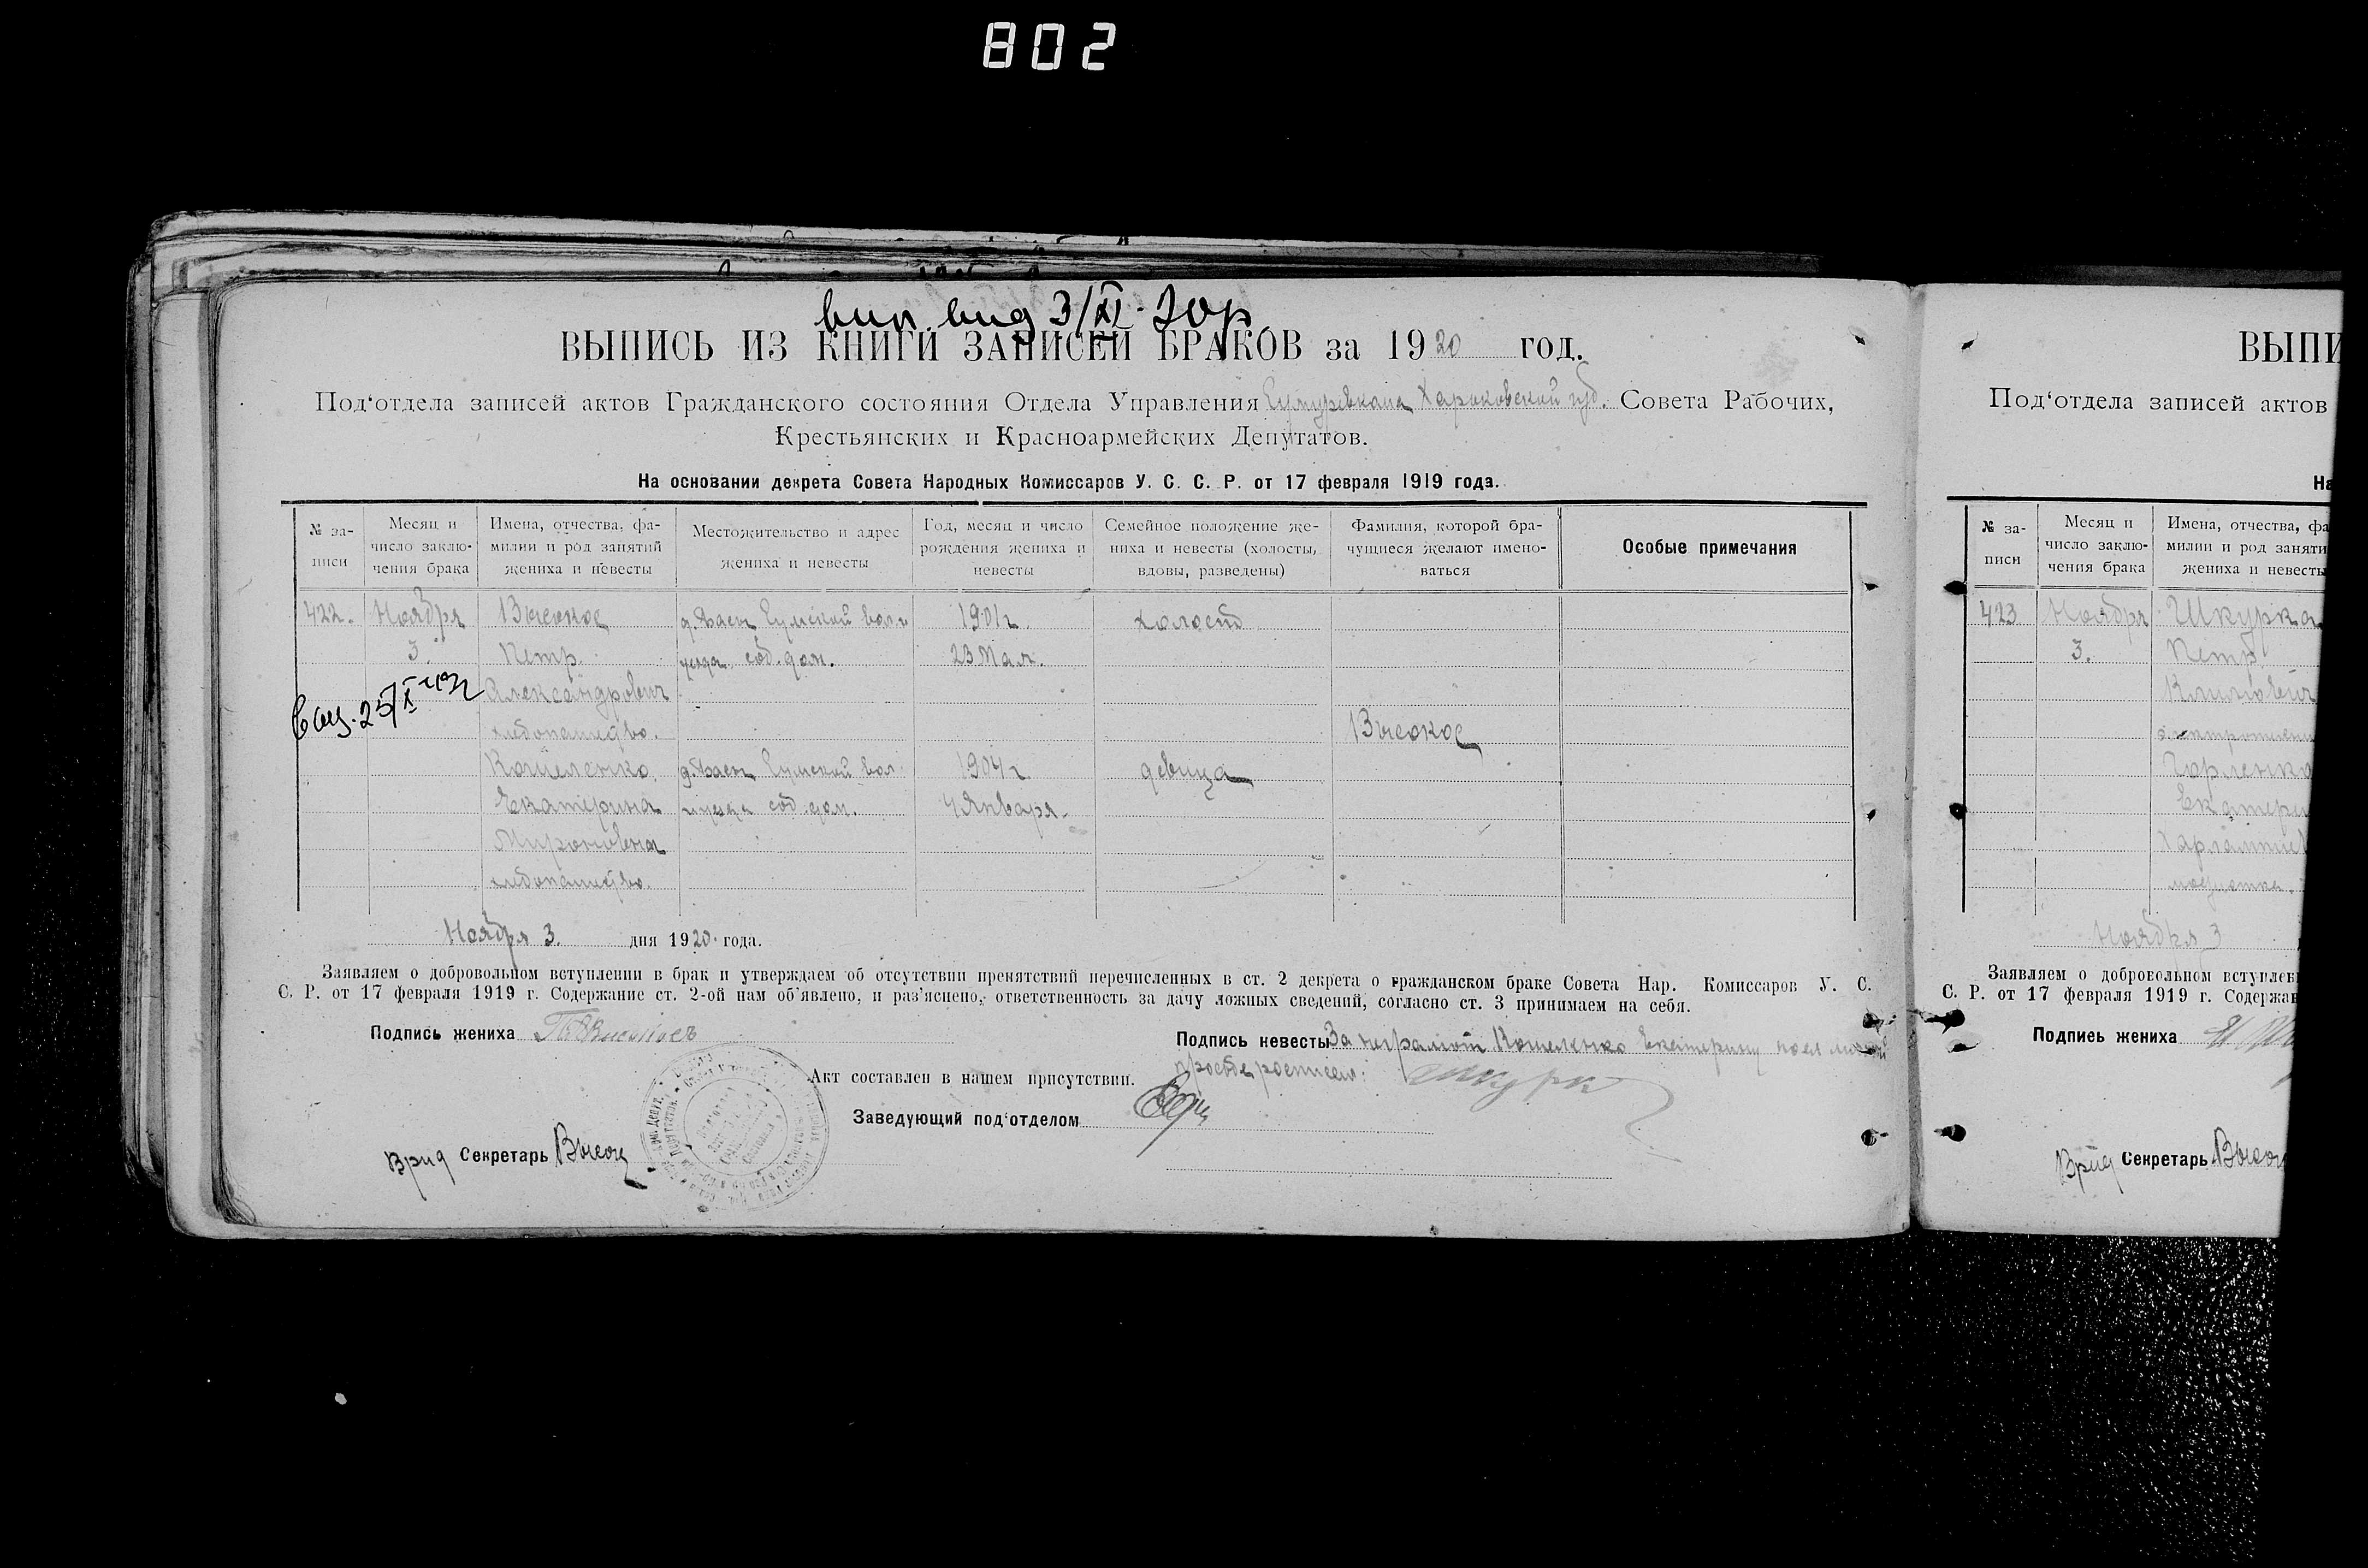 802
вип. вид 3/XI-30р
ВЫПИСЬ ИЗ КНИГИ ЗАПИСЕЙ БРАКОВ за 1920 год.
Под‘отдела записей актов Гражданского состояния Отдела Управления Харьковской губ. Совета Рабочих,
Крестьянских и Красноармейских Депутатов.
На основании декрета Совета Народных Комиссаров У. С. С. Р. от 17 февраля 1919 года.
№ за-писи
Месяц и число заклю-чения брака
Имена, отчества, фа-милии и род занятий жениха и невесты
Местожительство и адрес жениха и невесты
Год, месяц и число рождения жениха и невесты
Семейное положение же-ниха и невесты (холосты, вдовы, разведены)
Фамилия, которой бра-чущиеся желают имено-ваться
Особые примечания
422. Ноября Высокос Сумской вол 1901 г. холост
3. Петр. уезда соб. дом. 23 Мая.
Александрович
хлебопашество. Высокос
Кошеленко Сумской вол 1904 г. девица
Екатерина соб. дом. 4 Января.
Мироновна
хлебопашество.
Ноября 3. дня 1920 года.
Заявляем о добровольном вступлении в брак и утверждаем об отсутствии препятствий перечисленных в ст. 2 декрета о гражданском браке Совета Нар. Комиссаров У. С.
С. Р. от 17 февраля 1919 г. Содержание ст. 2-ой нам об’явлено, и раз’яснено, ответственность за дачу ложных сведений, согласно ст. 3 принимаем на себя.
Подпись жениха П. Высокос
Подпись невесты За неграмот Кошеленко Екатерину по ея личной
просьбе росписался: Шкурк
Акт составлен в нашем присутствии.
Заведующий под‘отделом
Врид Секретарь
ВЫПИ
Под‘отдела записей актов
На
№ за-писи
Месяц и число заклю-чения брака
Имена, отчества, фа
милии и род заняти
жениха и невесты
423 Ноября Шкурка
3. Петр
Горленко
Екатери
Харлампиев
Ноября 3
Заявляем о добровольном вступлен
С. Р. от 17 февраля 1919 г. Содержан
Подпись жениха
Врид Секретарь